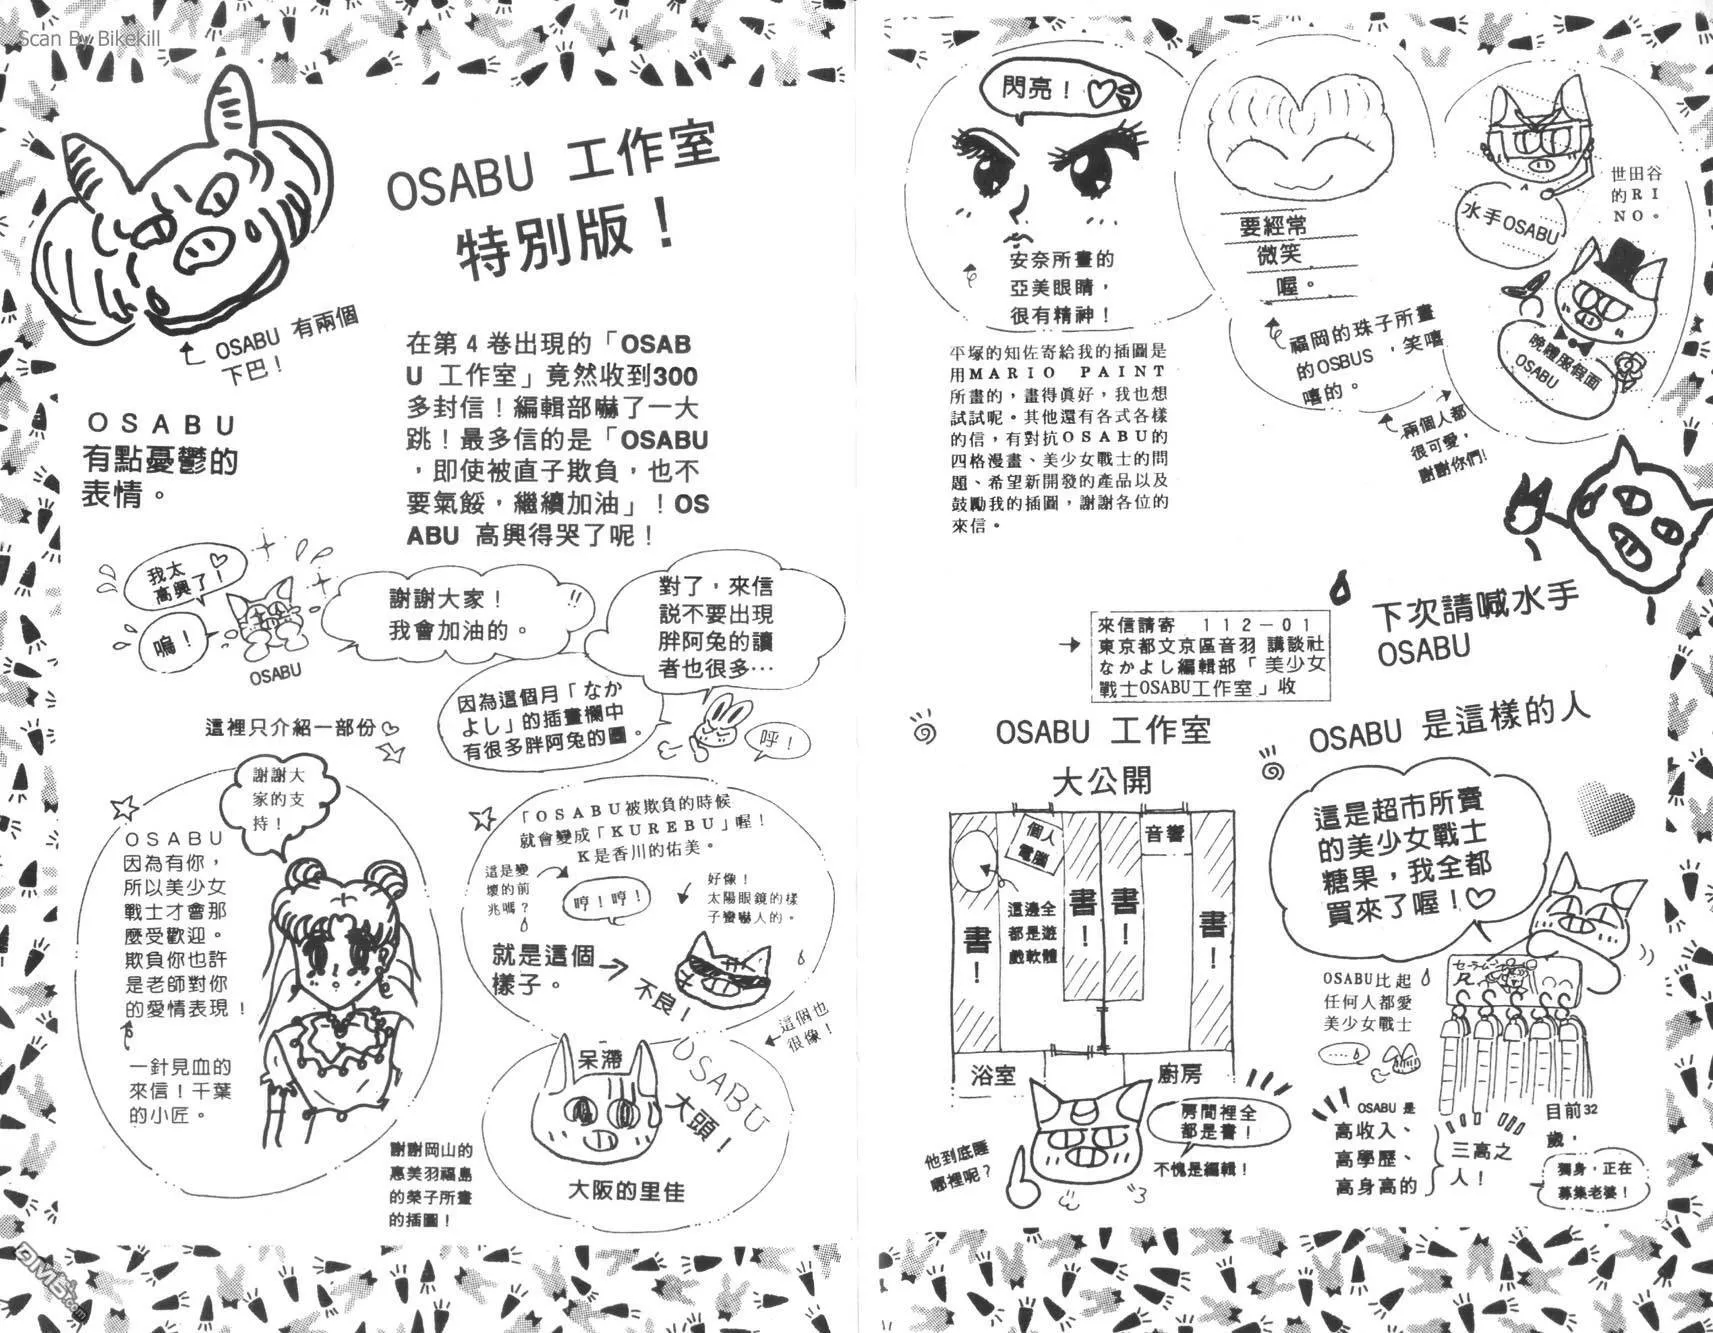 Scan By Bikekill
OSABU 工作室
特別版！
OSABU 有兩個
下巴！
OSABU
有點憂鬱的
表情。
在第4卷出現的「OSAB
U 工作室」竟然收到300
多封信！編輯部嚇了一大
跳！最多信的是「OSABU
，即使被直子欺負，也不
要氣餒，繼續加油」！OS
ABU 高興得哭了呢！
我太
高興了！
嗚！
OSABU
謝謝大家！
我會加油的。
!!
對了，來信
説不要出現
胖阿兔的讀
者也很多…
因為這個月「なか
よし」的插畫欄中
有很多胖阿兔的圖。
呼！
這裡只介紹一部份
謝謝大
家的支
持！
OSABU
因為有你，
所以美少女
戰士才會那
麼受歡迎。
欺負你也許
是老師對你
的愛情表現！
一針見血的
來信！千葉
的小匠。
「OSABU被欺負的時候
就會變成「KUREBU」喔！
K是香川的佑美。
這是變
壞的前
兆嗎？
哼！哼！
好像！
太陽眼鏡的樣
子蠻嚇人的。
就是這個
樣子。
不良！
這個也
很像！
呆滯
OSABU
大頭！
大阪的里佳
謝謝岡山的
惠美羽福島
的榮子所畫
的插圖！
閃亮！
安奈所畫的
亞美眼睛，
很有精神！
要經常
微笑
喔。
福岡的珠子所畫
的OSBUS，笑嘻
嘻的。
世田谷
的RI
NO。
水手OSABU
晚禮服假面
OSABU
兩個人都
很可愛，
謝謝你們！
平塚的知佐寄給我的插圖是
用MARIO PAINT
所畫的，畫得真好，我也想
試試呢。其他還有各式各樣
的信，有對抗OSABU的
四格漫畫、美少女戰士的問
題、希望新開發的產品以及
鼓勵我的插圖，謝謝各位的
來信。
下次請喊水手
OSABU
來信請寄 112－01
東京都文京區音羽 講談社
なかよし編輯部「美少女
戰士OSABU工作室」收
OSABU 工作室
大公開
個人
電腦
音響
書！
書！
書！
書！
這邊全
都是遊
戲軟體
浴室
廚房
他到底睡
哪裡呢？
房間裡全
都是書！
不愧是編輯！
OSABU 是這樣的人
這是超市所賣
的美少女戰士
糖果，我全都
買來了喔！
セーラームーン
R
OSABU比起
任何人都愛
美少女戰士
……
OSABU 是
高收入、
高學歷、
高身高的
三高之
人！
目前32
歲，
獨身，正在
募集老婆！